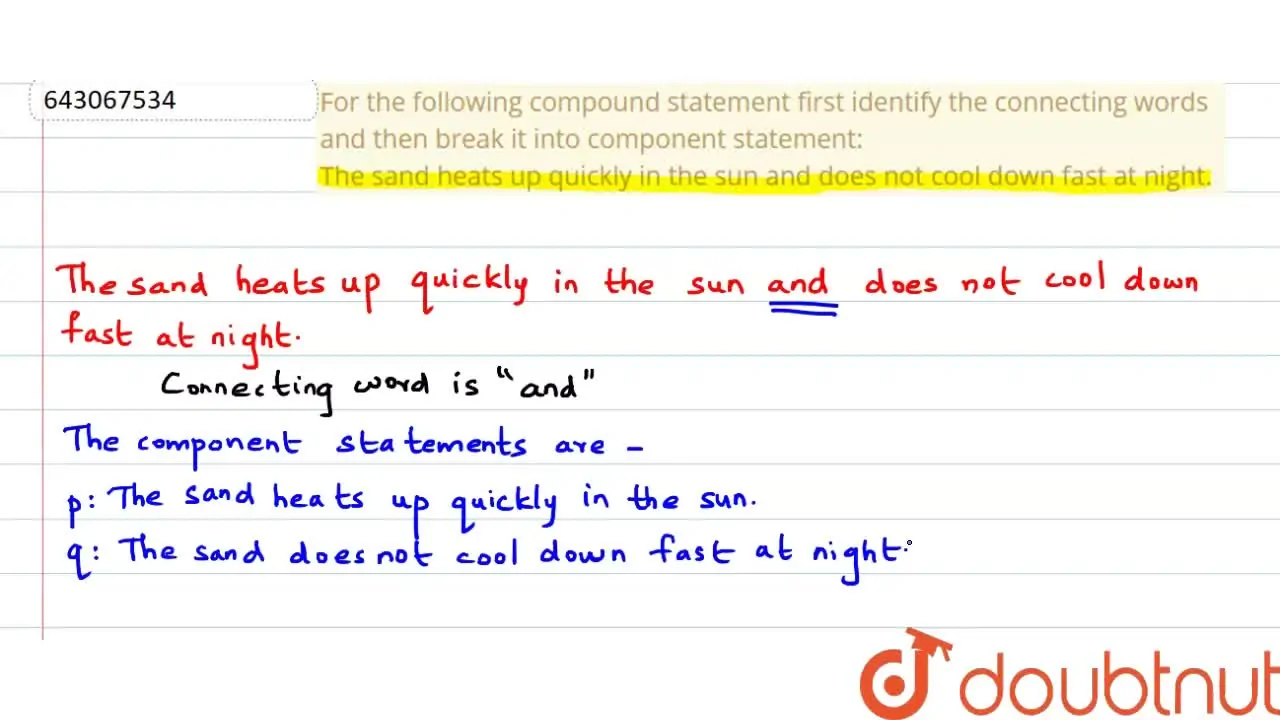 643067534
For the following compound statement first identify the connecting words
and then break it into component statement:
The sand heats up quickly in the sun and does not cool down fast at night.
The sand heats up quickly in the sun and does not cool down
fast at night.
Connecting word is "and"
The component statements are -
p: The sand heats up quickly in the sun.
q: The sand does not cool down fast at night.
doubtnut